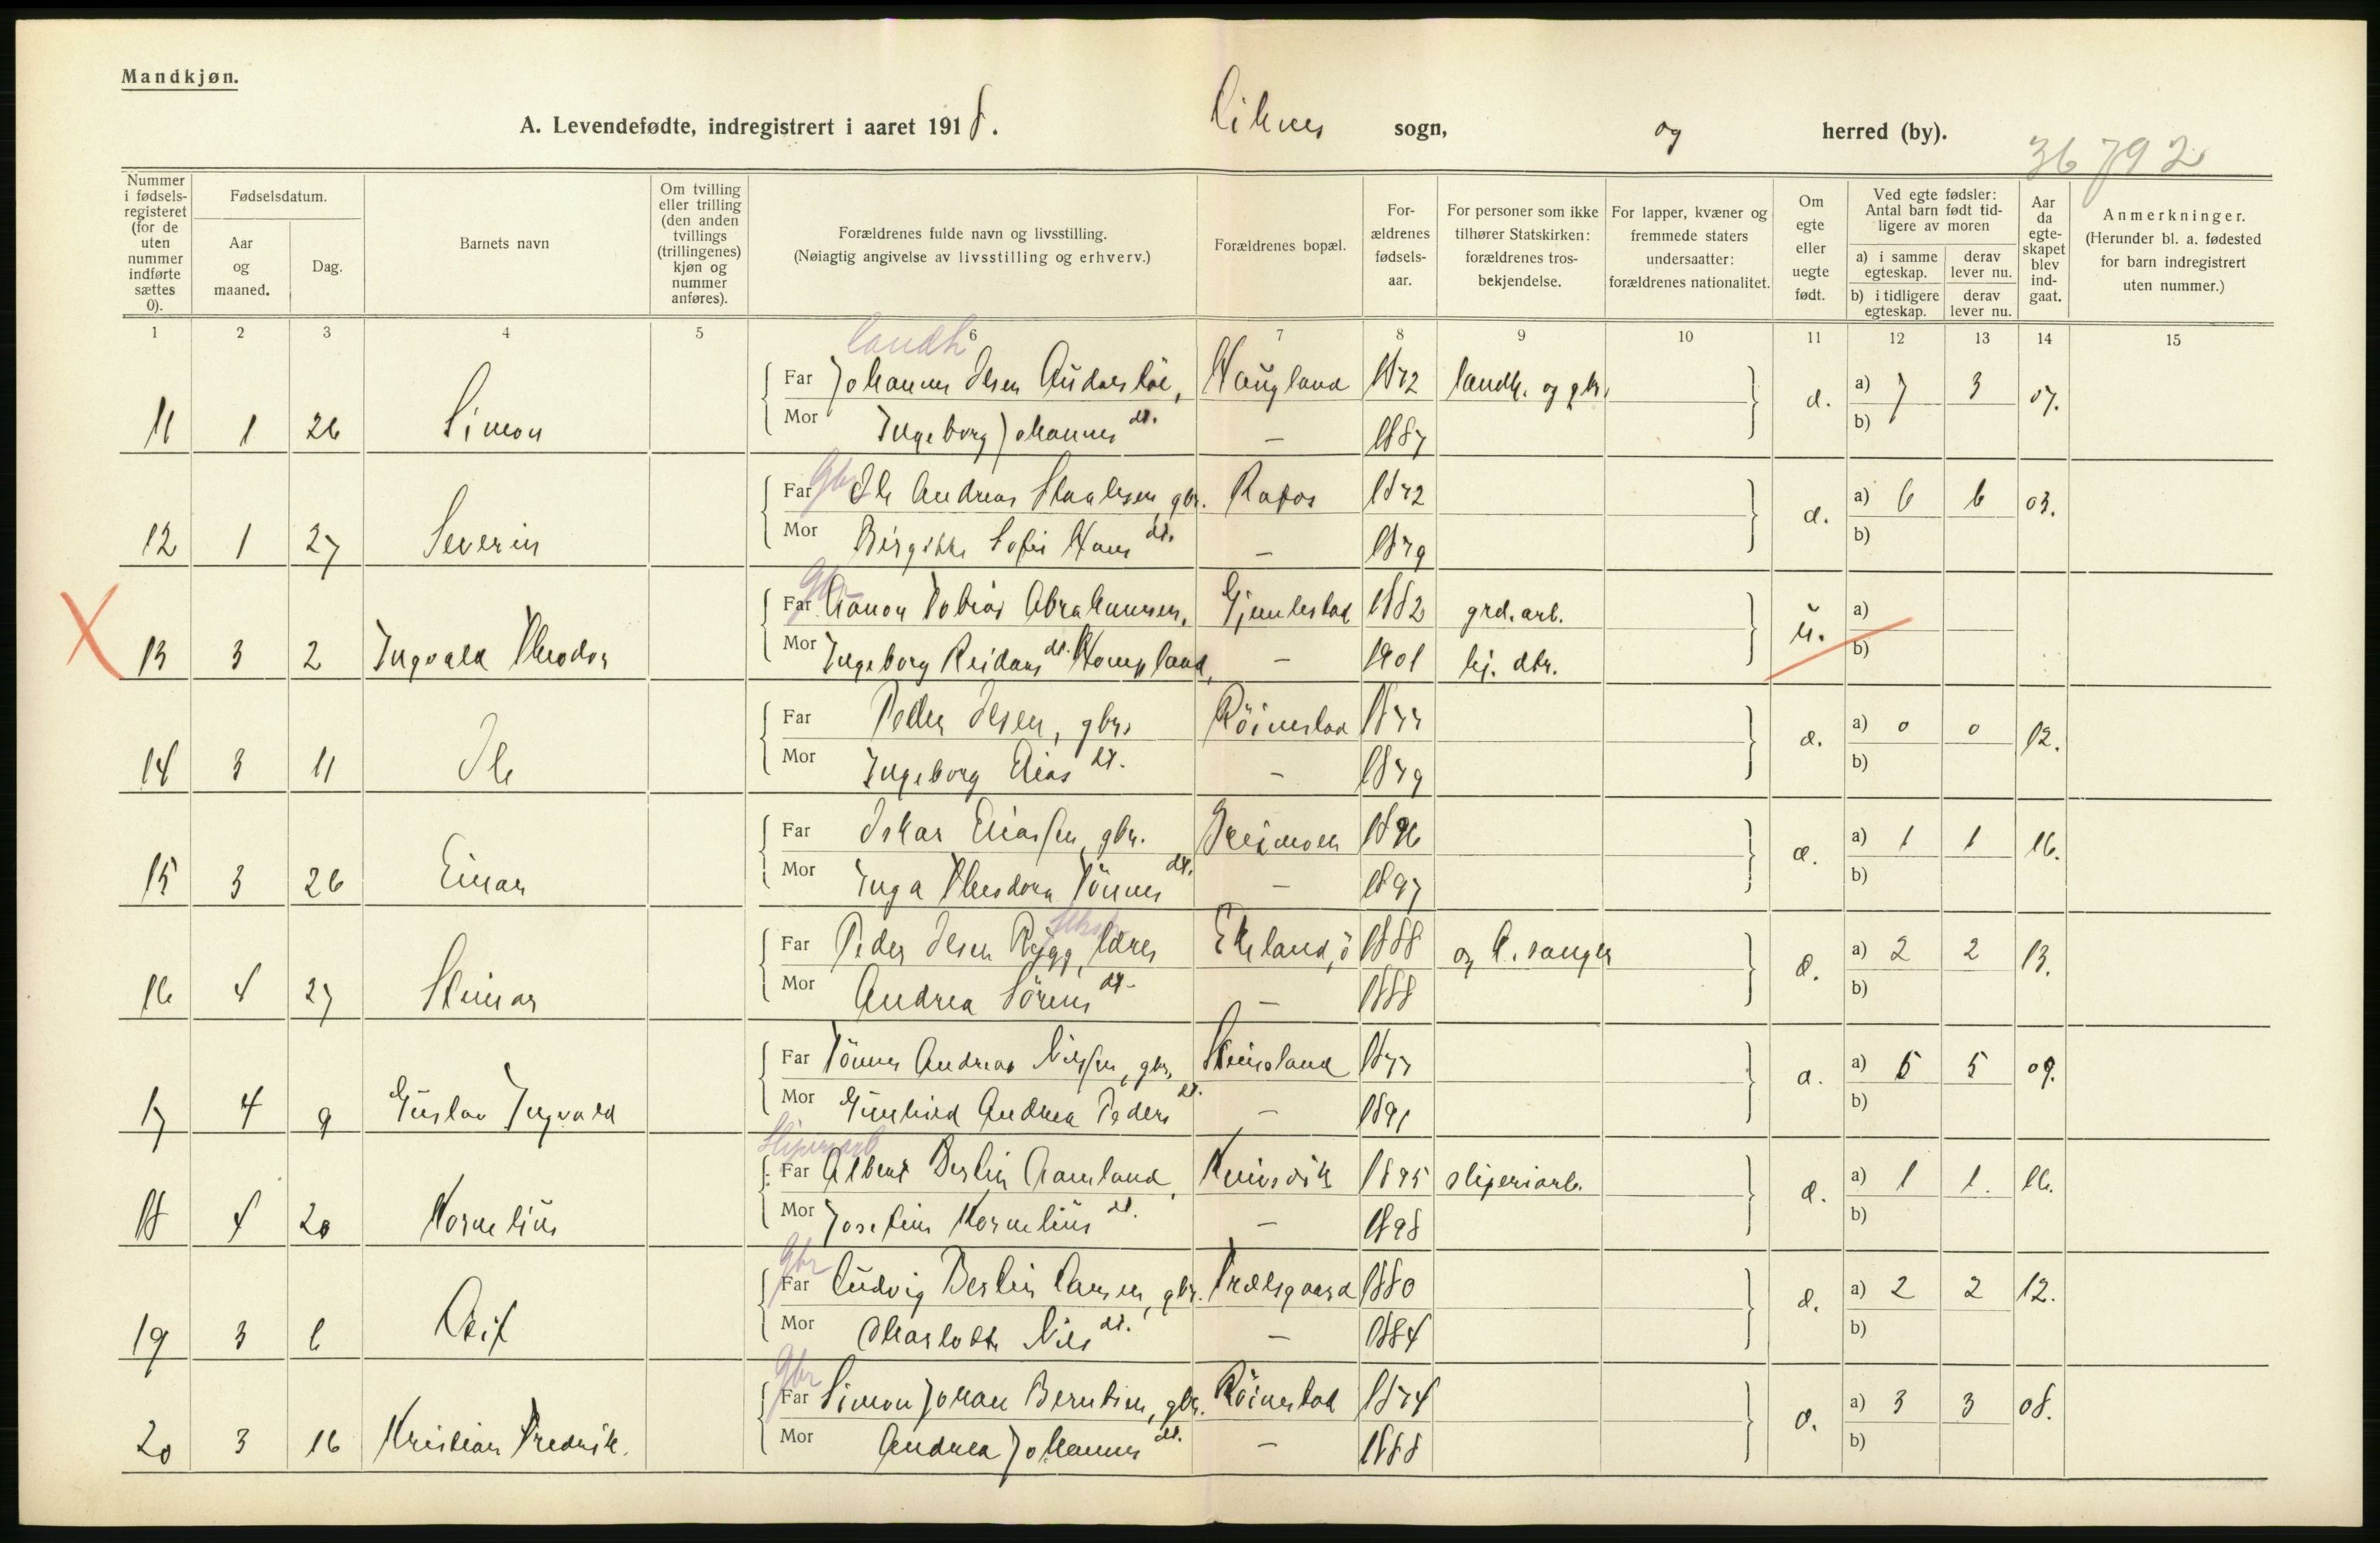 Mandkjøn.
A. Levendefødte, indregistrert i aaret 1918. Liknes sogn, og herred (by).
36792
Nummer i fødsels-registeret (for de uten nummer indførte sættes 0).
Fødselsdatum.
Aar og maaned.
Dag.
Barnets navn
Om tvilling eller trilling (den anden tvillings (trillingenes) kjøn og nummer anføres).
Forældrenes fulde navn og livsstilling.
(Nøiagtig angivelse av livsstilling og erhverv.)
Forældrenes bopæl.
For-ældrenes fødsels-aar.
For personer som ikke tilhører Statskirken: forældrenes tros-bekjendelse.
For lapper, kvæner og fremmede staters undersaatter: forældrenes nationalitet.
Om egte eller uegte født.
Ved egte fødsler: Antal barn født tid-ligere av moren
a) i samme egteskap.
derav lever nu.
b) i tidligere egteskap.
derav lever nu.
Aar da egte-skapet blev ind-gaat.
Anmerkninger.
(Herunder bl. a. fødested for barn indregistrert uten nummer.)
1 2 3 4 5 6 7 8 9 10 11 12 13 14 15
landh
Far Johannes Olsen, Haugland 1872 landh. og gbr.
11 1 26 Simon Mor Ingeborg Johannes dt. — 1887 æ. a) 7 3 07. b)
Gbr
Far Ole Andreas Staalesen, gbr. Rafos 1872
12 1 27 Severin Mor Birgitte Sofie Hans dt. — 1879 æ. a) 6 6 03. b)
Gbr
Far Aanon Tobias Abrahamsen, Gjemlestad 1882 grd.arb.
X 13 3 2 Ingvald Theodor Mor Ingeborg Reidars dt. Kvinlaug, — 1901 hj. dtr. u. a) b)
Far Peder Olsen, gbr. Röinestad 1877
14 3 11 Ole Mor Ingeborg Elias dt. — 1879 æ. a) 0 0 12. b)
Far Oskar Eliassen, gbr. 1896
15 3 26 Einar Mor Inga Theodora Tönnes dt. — 1897 æ. a) 1 1 16. b)
Far Peder Olsen Rygg, lærer Ekeland, ö 1888 og k. sanger
16 4 27 Steinar Mor Andrea Sörens dt. — 1888 æ. a) 2 2 13. b)
Far Tönnes Andreas Nilssen, gbr. Steinsland 1877
17 4 9 Gustav Ingvald Mor Gunhild Andrea Peders dt. — 1891 æ. a) 5 5 09. b)
Sliperiarb
Far Albert Berlin Aamland, Kvinsvik 1895 sliperiarb.
18 4 20 Kornelius Mor Josefine Kornelius dt. — 1898 æ. a) 1 1. 16. b)
Gbr
Far Ludvig Berlin Larsen, gbr. Trælsgaard 1880
19 3 6 Leif Mor Charlotte Nils dt. — 1884 æ. a) 2 2 12. b)
Gbr
Far Simon Johan Berntsen, gbr. Röinestad 1874
20 3 16 Kristian Fredrik. Mor Andrea Johannes dt. — 1888 æ. a) 3 3 08. b)